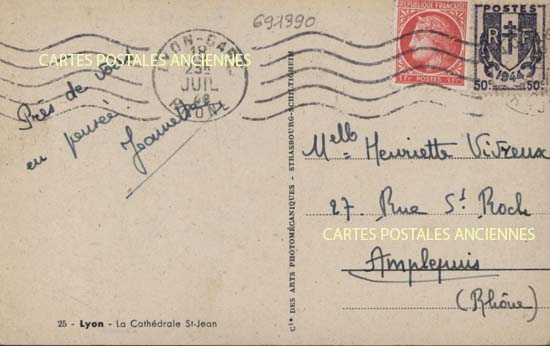 691390
RÉPUBLIQUE FRANÇAISE
1F. POSTES 1F.
POSTES
R F
1944
50c 50c
LYON-GARE
18
25
JUIL
RHÔNE
CARTES POSTALES ANCIENNES
Près de vous
en pensée!
Jeannette
Melle Henriette Vivreux
27 Rue St Roch
CARTES POSTALES ANCIENNES
Amplepuis
(Rhône)
Cie DES ARTS PHOTOMÉCANIQUES - STRASBOURG-SCHILTIGHEIM
25 - Lyon - La Cathédrale St-Jean